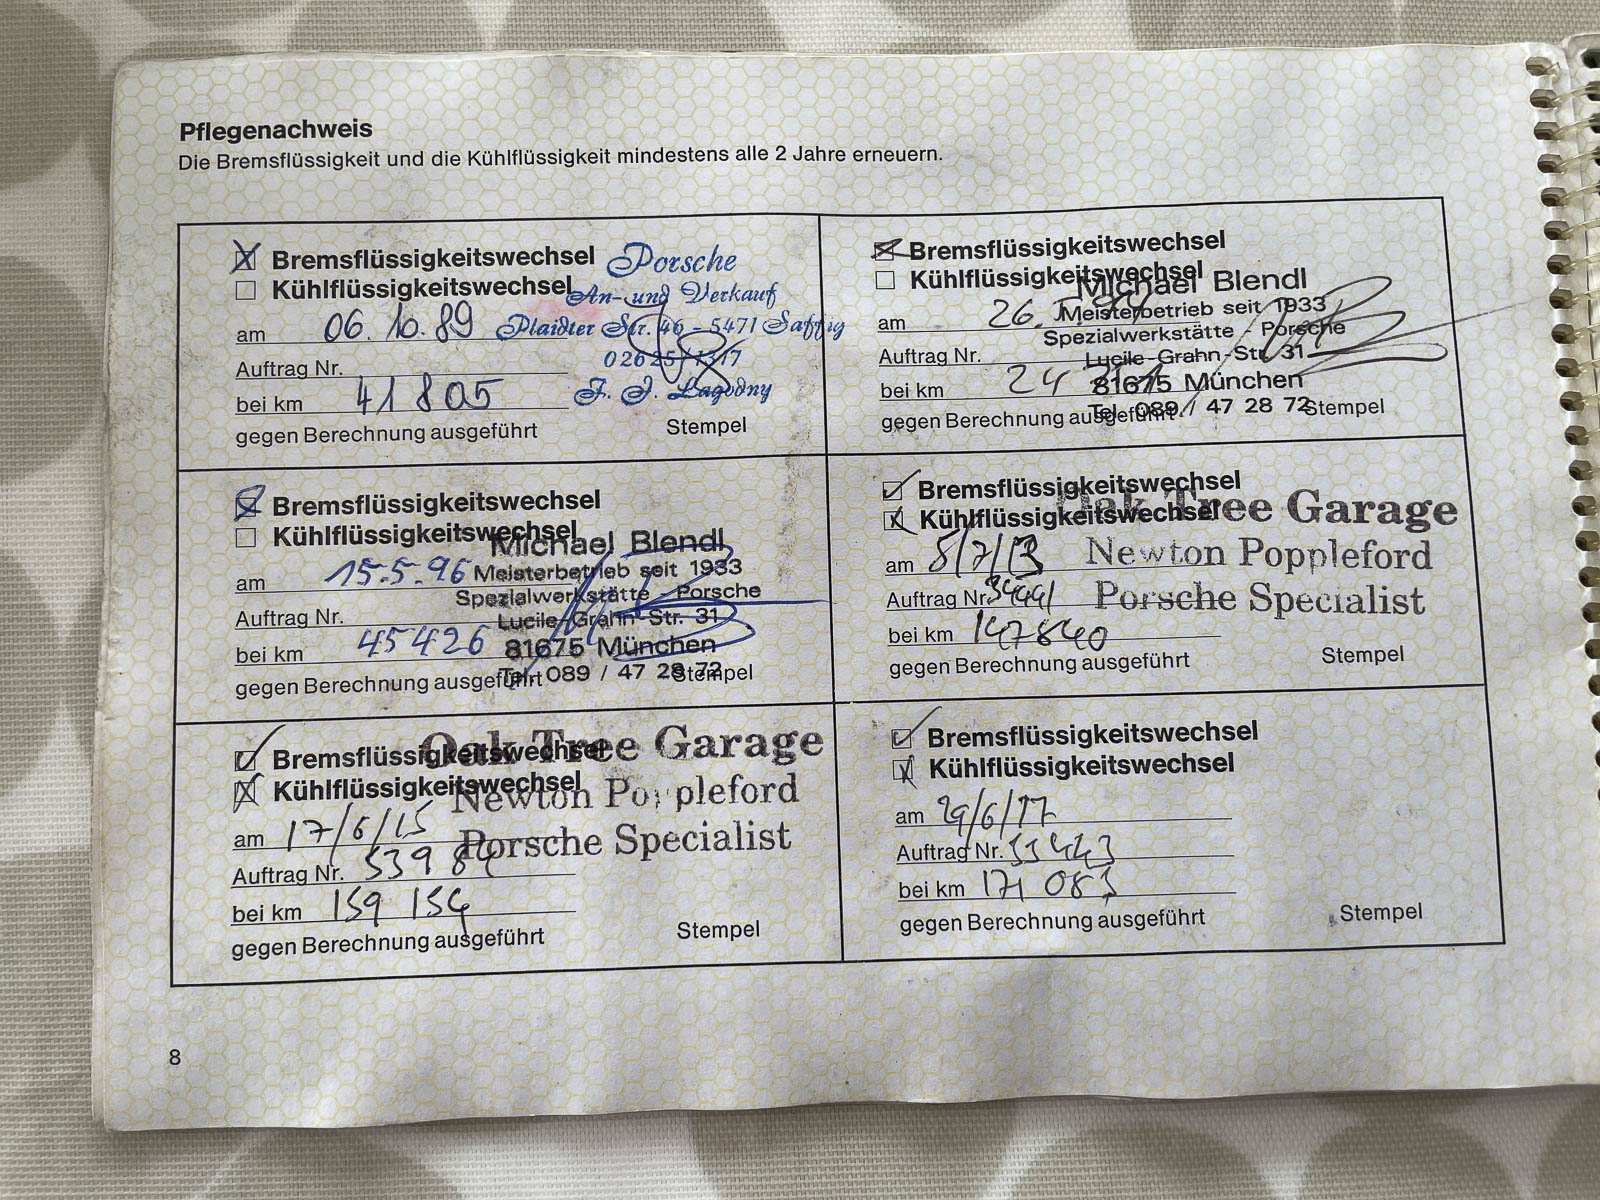 Pflegenachweis
Die Bremsflüssigkeit und die Kühlflüssigkeit mindestens alle 2 Jahre erneuern.
Bremsflüssigkeitswechsel
Kühlflüssigkeitswechsel
am 06.10.89
Auftrag Nr.
bei km 41805
gegen Berechnung ausgeführt
Stempel
Porsche
An- und Verkauf
Plaidter Str. 46 - 5471 Saffig
02625/1317
F. J. Lagodny
Bremsflüssigkeitswechsel
Kühlflüssigkeitswechsel
am 26.
Auftrag Nr.
bei km 24
gegen Berechnung ausgeführt
Stempel
Michael Blendl
Meisterbetrieb seit 1933
Spezialwerkstätte - Porsche
Lucile-Grahn-Str. 31
81675 München
Tel. 089 / 47 28 72
Bremsflüssigkeitswechsel
Kühlflüssigkeitswechsel
am 15.5.96
Auftrag Nr.
bei km 45426
gegen Berechnung ausgeführt
Stempel
Michael Blendl
Meisterbetrieb seit 1933
Spezialwerkstätte - Porsche
Lucile-Grahn-Str. 31
81675 München
Tel. 089 / 47 28 72
Bremsflüssigkeitswechsel
Kühlflüssigkeitswechsel
am 8/7/13
Auftrag Nr.
bei km 147840
gegen Berechnung ausgeführt
Stempel
Oak Tree Garage
Newton Poppleford
Porsche Specialist
Bremsflüssigkeitswechsel
Kühlflüssigkeitswechsel
am 17/6/15
Auftrag Nr. 53984
bei km 159 154
gegen Berechnung ausgeführt
Stempel
Oak Tree Garage
Newton Poppleford
Porsche Specialist
Bremsflüssigkeitswechsel
Kühlflüssigkeitswechsel
am 29/6/17
Auftrag Nr.
bei km 171 083
gegen Berechnung ausgeführt
Stempel
8